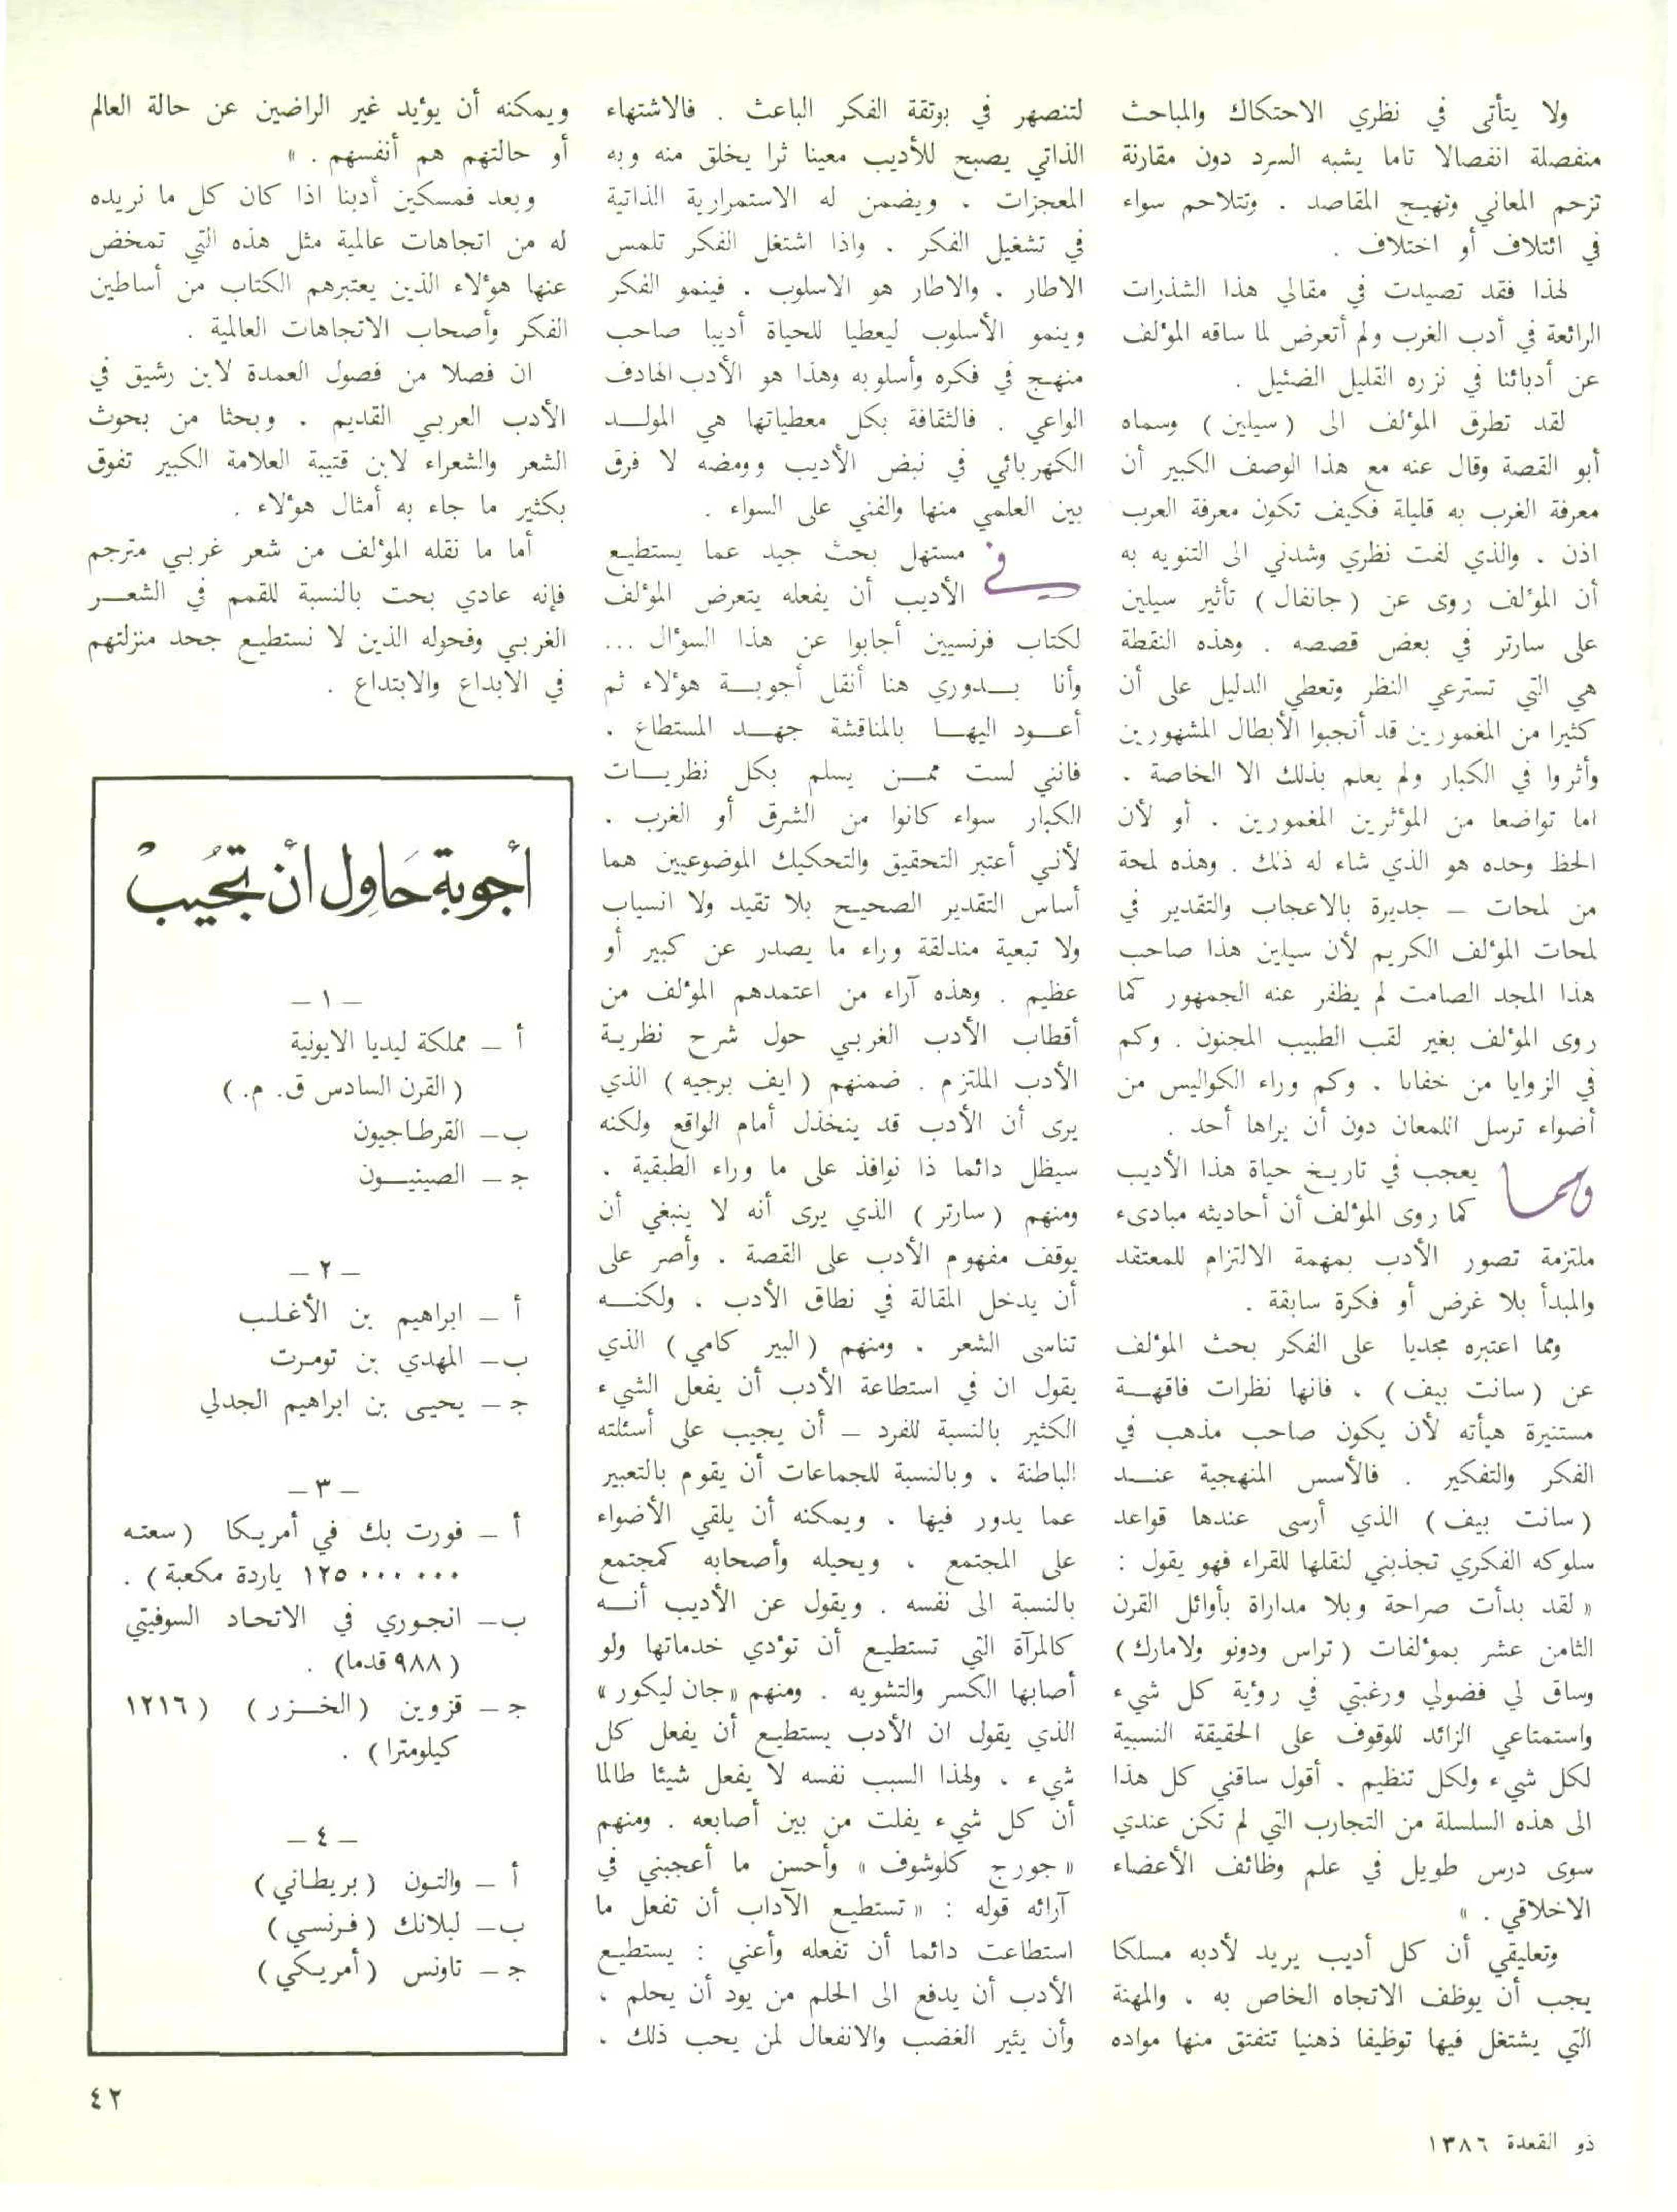 ولا يتأتى في نظري الاحتكاك والمباحث
منفصلة انفصالا تاما يشبه السرد دون مقارنة
تزحم المعاني وتهيج المقاصد . وتتلاحم سواء
في ائتلاف أو اختلاف .
لهذا فقد تصيدت في مقالي هذا الشذرات
الرائعة في أدب الغرب ولم أتعرض لما ساقه المؤلف
عن أدبائنا في نزره القليل الضئيل .
لقد تطرق المؤلف الى ( سيلين ) وسماه
أبو القصة وقال عنه مع هذا الوصف الكبير أن
معرفة الغرب به قليلة فكيف تكون معرفة العرب
اذن . والذي لفت نظري وشدني الى التنويه به
أن المؤلف روى عن ( جانفال ) تأثير سيلين
على سارتر في بعض قصصه . وهذه النقطة
هي التي تسترعي النظر وتعطي الدليل على أن
كثيرا من المغمورين قد أنجبوا الأبطال المشهورين
وأثروا في الكبار ولم يعلم بذلك الا الخاصة .
اما تواضعا من المؤثرين المغمورين . أو لأن
الحظ وحده هو الذي شاء له ذلك . وهذه لمحة
من لمحات – جديرة بالاعجاب والتقدير في
لمحات المؤلف الكريم لأن سيلين هذا صاحب
هذا المجد الصامت لم يظفر عنه الجمهور كما
روى المؤلف بغير لقب الطبيب المجنون . وكم
في الزوايا من خفايا . وكم وراء الكواليس من
أضواء ترسل اللمعان دون أن يراها أحد .
ومما يعجب في تاريخ حياة هذا الأديب
كما روى المؤلف أن أحاديثه مبادىء
ملتزمة تصور الأدب بمهمة الالتزام للمعتقد
والمبدأ بلا غرض أو فكرة سابقة .
ومما اعتبره مجديا على الفكر بحث المؤلف
عن ( سانت بيف ) ، فانها نظرات فاقهة
مستنيرة هيأته لأن يكون صاحب مذهب في
الفكر والتفكير . فالأسس المنهجية عند
( سانت بيف ) الذي أرسى عندها قواعد
سلوكه الفكري تجذبني لنقلها للقراء فهو يقول :
« لقد بدأت صراحة وبلا مداراة بأوائل القرن
الثامن عشر بمؤلفات ( تراس ودونو ولامارك )
وساق لي فضولي ورغبتي في رؤية كل شيء
واستمتاعي الزائد للوقوف على الحقيقة النسبية
لكل شيء ولكل تنظيم . أقول ساقني كل هذا
الى هذه السلسلة من التجارب التي لم تكن عندي
سوى درس طويل في علم وظائف الأعضاء
الاخلاقي . »
وتعليقي أن كل أديب يريد لأدبه مسلكا
يجب أن يوظف الاتجاه الخاص به . والمهنة
التي يشتغل فيها توظيفا ذهنيا تتفتق منها مواده
لتنصهر في بوتقة الفكر الباعث . فالاشتهاء
الذاتي يصبح للأديب معينا ثرا يخلق منه وبه
المعجزات . ويضمن له الاستمرارية الذاتية
في تشغيل الفكر . واذا اشتغل الفكر تلمس
الاطار . والاطار هو الاسلوب . فينمو الفكر
وينمو الأسلوب ليعطيا للحياة أديبا صاحب
منهج في فكره وأسلوبه وهذا هو الأدب الهادف
الواعي . فالثقافة بكل معطياتها هي المولد
الكهربائي في نبض الأديب وومضه لا فرق
بين العلمي منها والفني على السواء .
في مستهل بحث جيد عما يستطيع
الأديب أن يفعله يتعرض المؤلف
لكتاب فرنسيين أجابوا عن هذا السؤال ...
وأنا بدوري هنا أنقل أجوبة هؤلاء ثم
أعود اليها بالمناقشة جهد المستطاع .
فانني لست ممن يسلم بكل نظريات
الكبار سواء كانوا من الشرق أو الغرب .
لأني أعتبر التحقيق والتحكيك الموضوعيين هما
أساس التقدير الصحيح بلا تقيد ولا انسياب
ولا تبعية مندلقة وراء ما يصدر عن كبير أو
عظيم . وهذه آراء من اعتمدهم المؤلف من
أقطاب الأدب الغربي حول شرح نظرية
الأدب الملتزم . ضمنهم ( ايف برجيه ) الذي
يرى أن الأدب قد ينخذل أمام الواقع ولكنه
سيظل دائما ذا نوافذ على ما وراء الطبقية .
ومنهم ( سارتر ) الذي يرى أنه لا ينبغي أن
يوقف مفهوم الأدب على القصة . وأصر على
أن يدخل المقالة في نطاق الأدب ، ولكنه
تناسى الشعر . ومنهم ( البير كامي ) الذي
يقول ان في استطاعة الأدب أن يفعل الشيء
الكثير بالنسبة للفرد – أن يجيب على أسئلته
الباطنة ، وبالنسبة للجماعات أن يقوم بالتعبير
عما يدور فيها ، ويمكنه أن يلقي الأضواء
على المجتمع ، ويحيله وأصحابه كمجتمع
بالنسبة الى نفسه . ويقول عن الأديب أنه
كالمرآة التي تستطيع أن تؤدي خدماتها ولو
أصابها الكسر والتشويه . ومنهم « جان ليكور »
الذي يقول ان الأدب يستطيع أن يفعل كل
شيء ، ولهذا السبب نفسه لا يفعل شيئا طالما
أن كل شيء يفلت من بين أصابعه . ومنهم
« جورج كلوشوف » وأحسن ما أعجبني في
آرائه قوله : « تستطيع الآداب أن تفعل ما
استطاعت دائما أن تفعله وأعني : يستطيع
الأدب أن يدفع الى الحلم من يود أن يحلم ،
وأن يثير الغضب والانفعال لمن يحب ذلك ،
ويمكنه أن يؤيد غير الراضين عن حالة العالم
أو حالتهم هم أنفسهم . »
وبعد فمسكين أدبنا اذا كان كل ما نريده
له من اتجاهات عالمية مثل هذه التي تمخض
عنها هؤلاء الذين يعتبرهم الكتاب من أساطين
الفكر وأصحاب الاتجاهات العالمية .
ان فصلا من فصول العمدة لابن رشيق في
الأدب العربي القديم . وبحثا من بحوث
الشعر والشعراء لابن قتيبة العلامة الكبير تفوق
بكثير ما جاء به أمثال هؤلاء .
أما ما نقله المؤلف من شعر غربي مترجم
فإنه عادي بحت بالنسبة للقمم في الشعر
الغربي وفحوله الذين لا نستطيع جحد منزلتهم
في الابداع والابتداع .
أجوبة حَاوِل أنْ تجُيبْ
– ١ –
أ – مملكة ليديا الايونية
( القرن السادس ق. م. )
ب– القرطاجيون
ج – الصينيون
– ٢ –
أ – ابراهيم بن الأغلب
ب– المهدي بن تومرت
ج – يحيى بن ابراهيم الجدلي
– ٣ –
أ – فورت بك في أمريكا ( سعته
١٢٥٠٠٠٠٠٠ ياردة مكعبة ) .
ب– انجوري في الاتحاد السوفيتي
( ٩٨٨ قدما ) .
ج – قزوين ( الخزر ) ( ١٢١٦
كيلومترا ) .
– ٤ –
أ – والتون ( بريطاني )
ب– لبلانك ( فرنسي )
ج – تاونس ( أمريكي )
٤٢
ذو القعدة ١٣٨٦